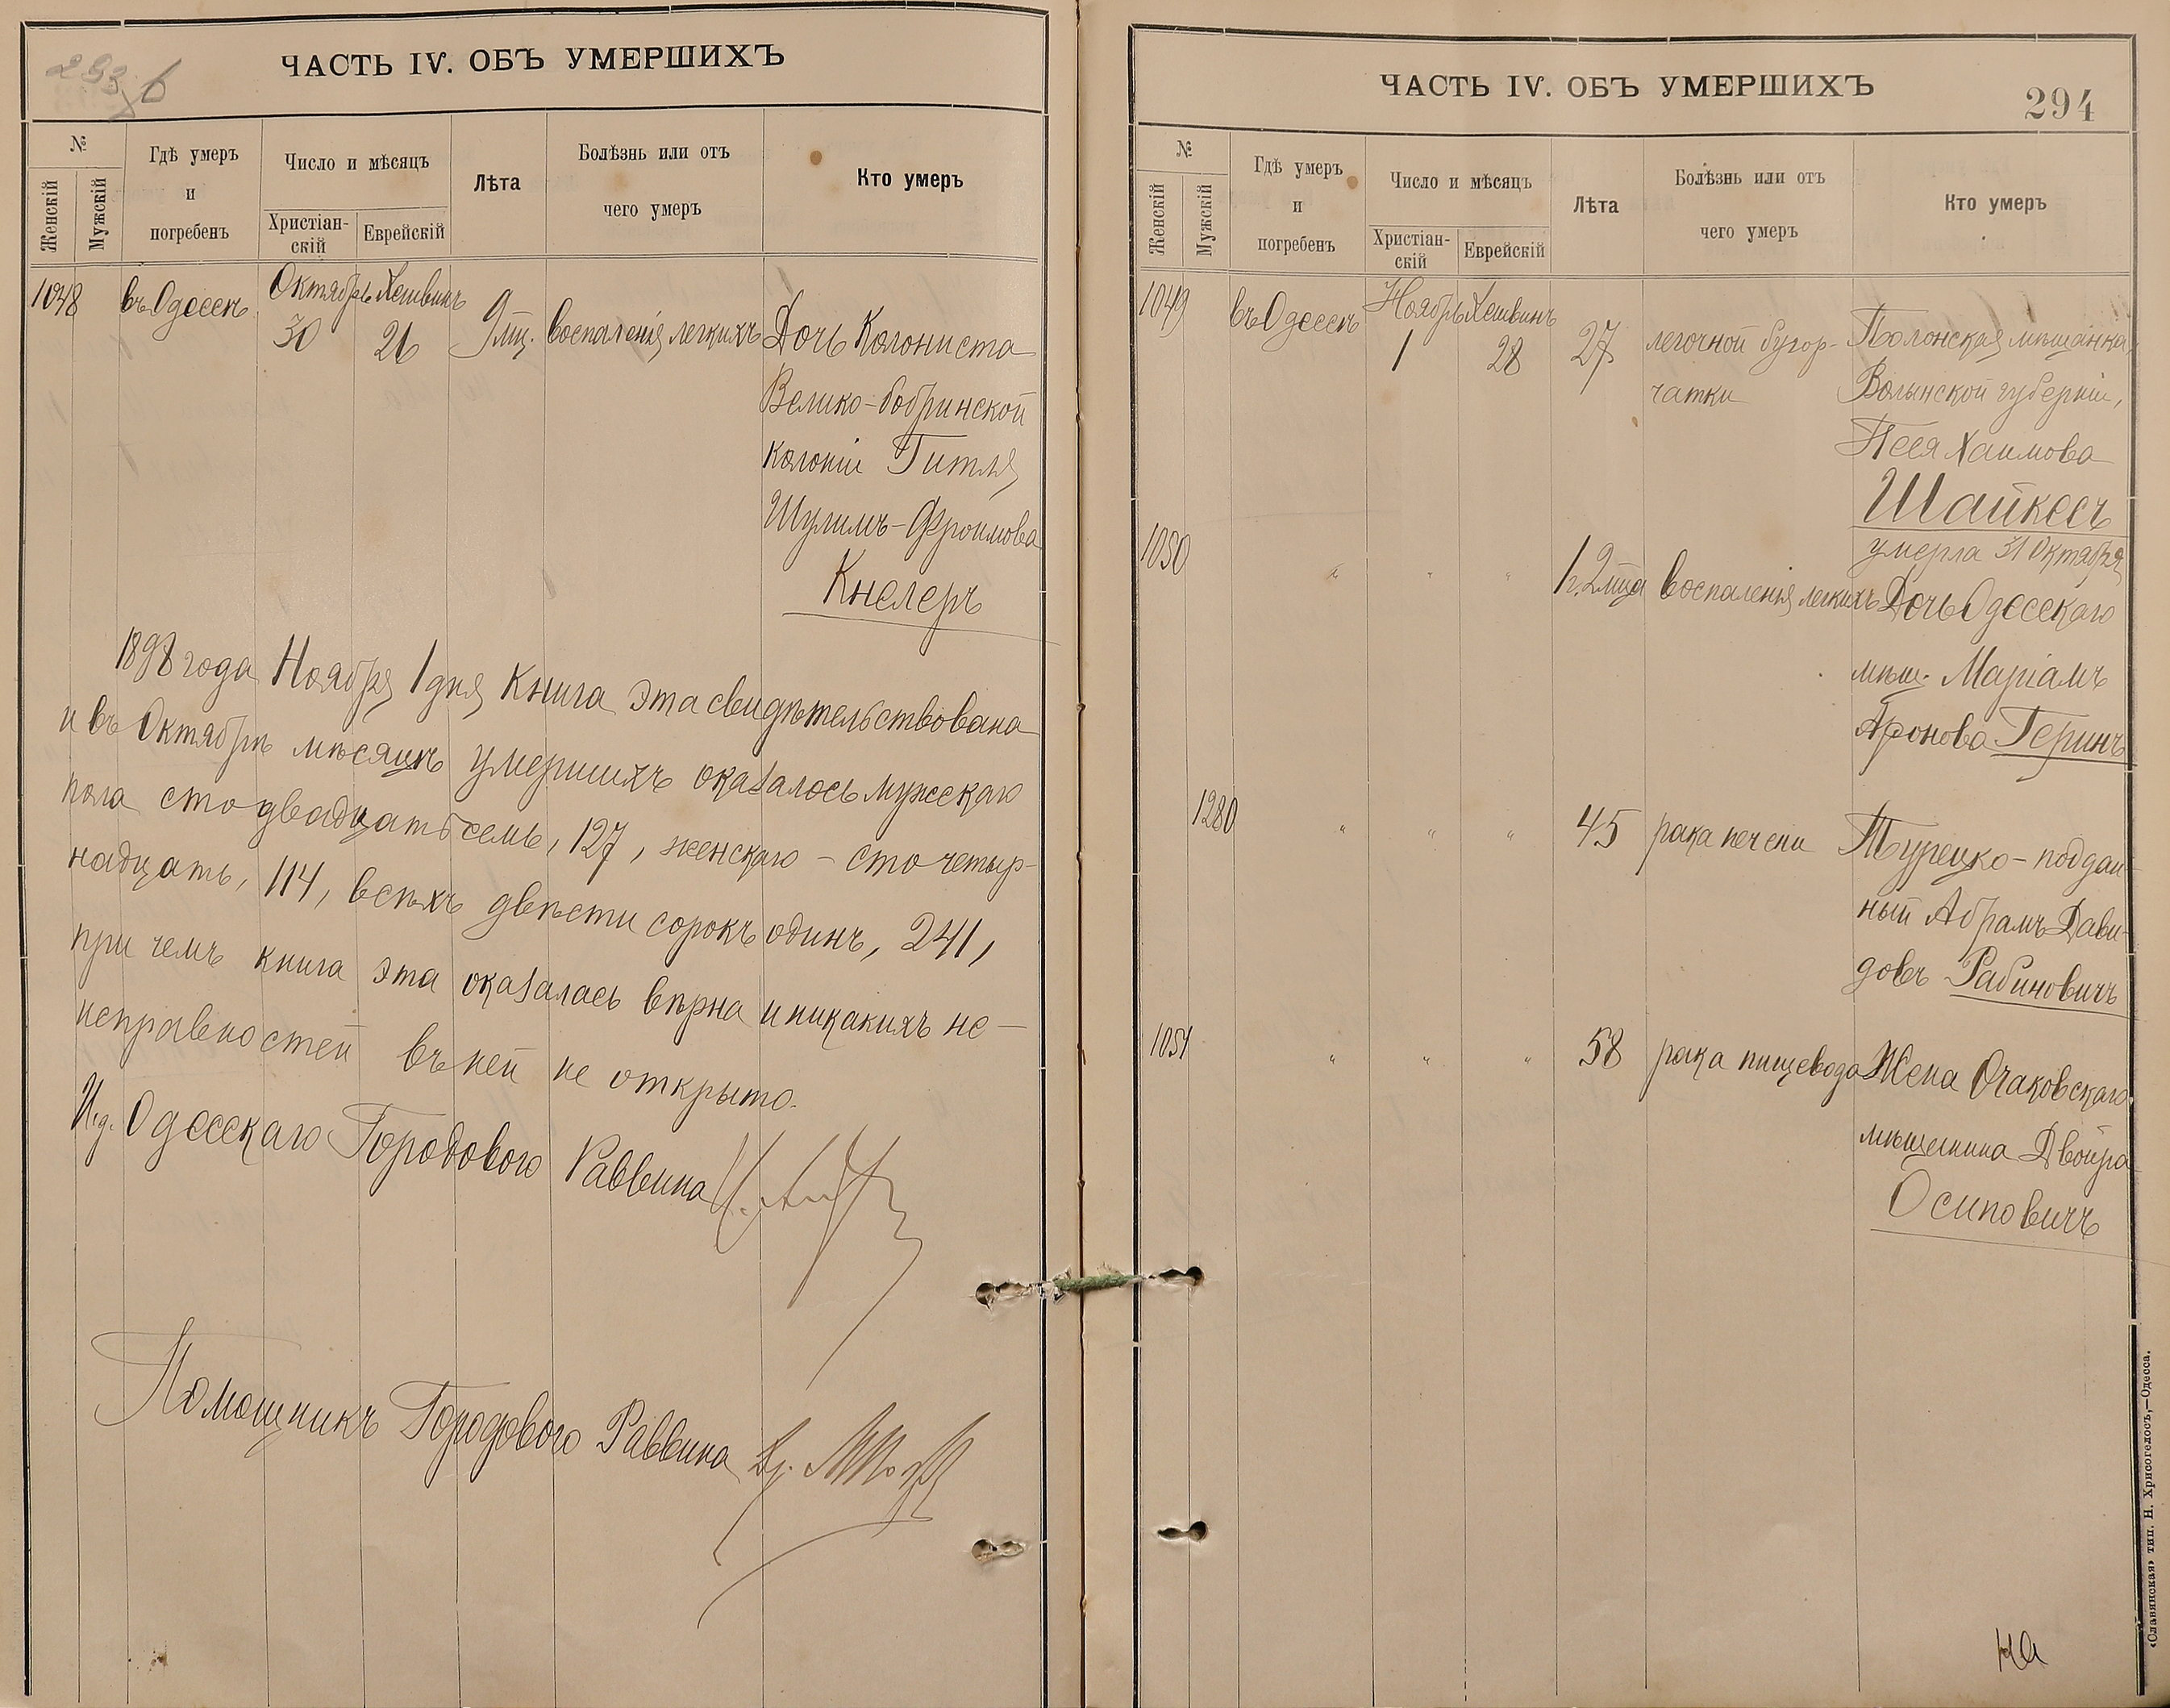 293 б
ЧАСТЬ IV. ОБЪ УМЕРШИХЪ
№
Женскій
Мужскій
Гдѣ умеръ
и
погребенъ
Число и мѣсяцъ
Христіан-
скій
Еврейскій
Лѣта
Болѣзнь или отъ
чего умеръ
Кто умеръ
1048 въ Одессѣ Октябрь 30 Хешвинъ 26 9 мц. воспаленія легкихъ Дочь Колониста
Велико-бобринской
колоніи Гитля
Шулимъ-Фроимова
Кнелеръ
1898 года Ноября 1 дня Книга эта свидѣтельствована
и въ Октябрѣ мѣсяцѣ умершихъ оказалось мужскаго
пола сто двадцать семь, 127, женскаго - сто четыр-
надцать, 114, всѣхъ двѣсти сорокъ одинъ, 241,
при чемъ книга эта оказалась вѣрна и никакихъ не-
исправностей въ ней не открыто.
И.д. Одесскаго Городового Раввина
Помощникъ Городового Раввина
ЧАСТЬ IV. ОБЪ УМЕРШИХЪ
294
№
Женскій
Мужскій
Гдѣ умеръ
и
погребенъ
Число и мѣсяцъ
Христіан-
скій
Еврейскій
Лѣта
Болѣзнь или отъ
чего умеръ
Кто умеръ
1049 въ Одессѣ Ноябрь 1 Хешвинъ 28 27 легочной бугор- Полонская мѣщанка
чатки Волынской губерніи,
Песя Хаимова
Шайкесъ
умерла 31 Октября
1050 " " " 1 г. 2 мца воспаленія легкихъ Дочь Одесскаго
мѣщ. Маріамъ
Аронова Геринъ
1280 " " " 45 рака печени Турецко-поддан-
ный Абрамъ Дави-
довъ Рабиновичъ
1051 " " " 58 рака пищевода Жена Очаковскаго
мѣщанина Двойра
Осиповичъ
на
«Славянская» тип. Н. Хрисогелосъ,—Одесса.